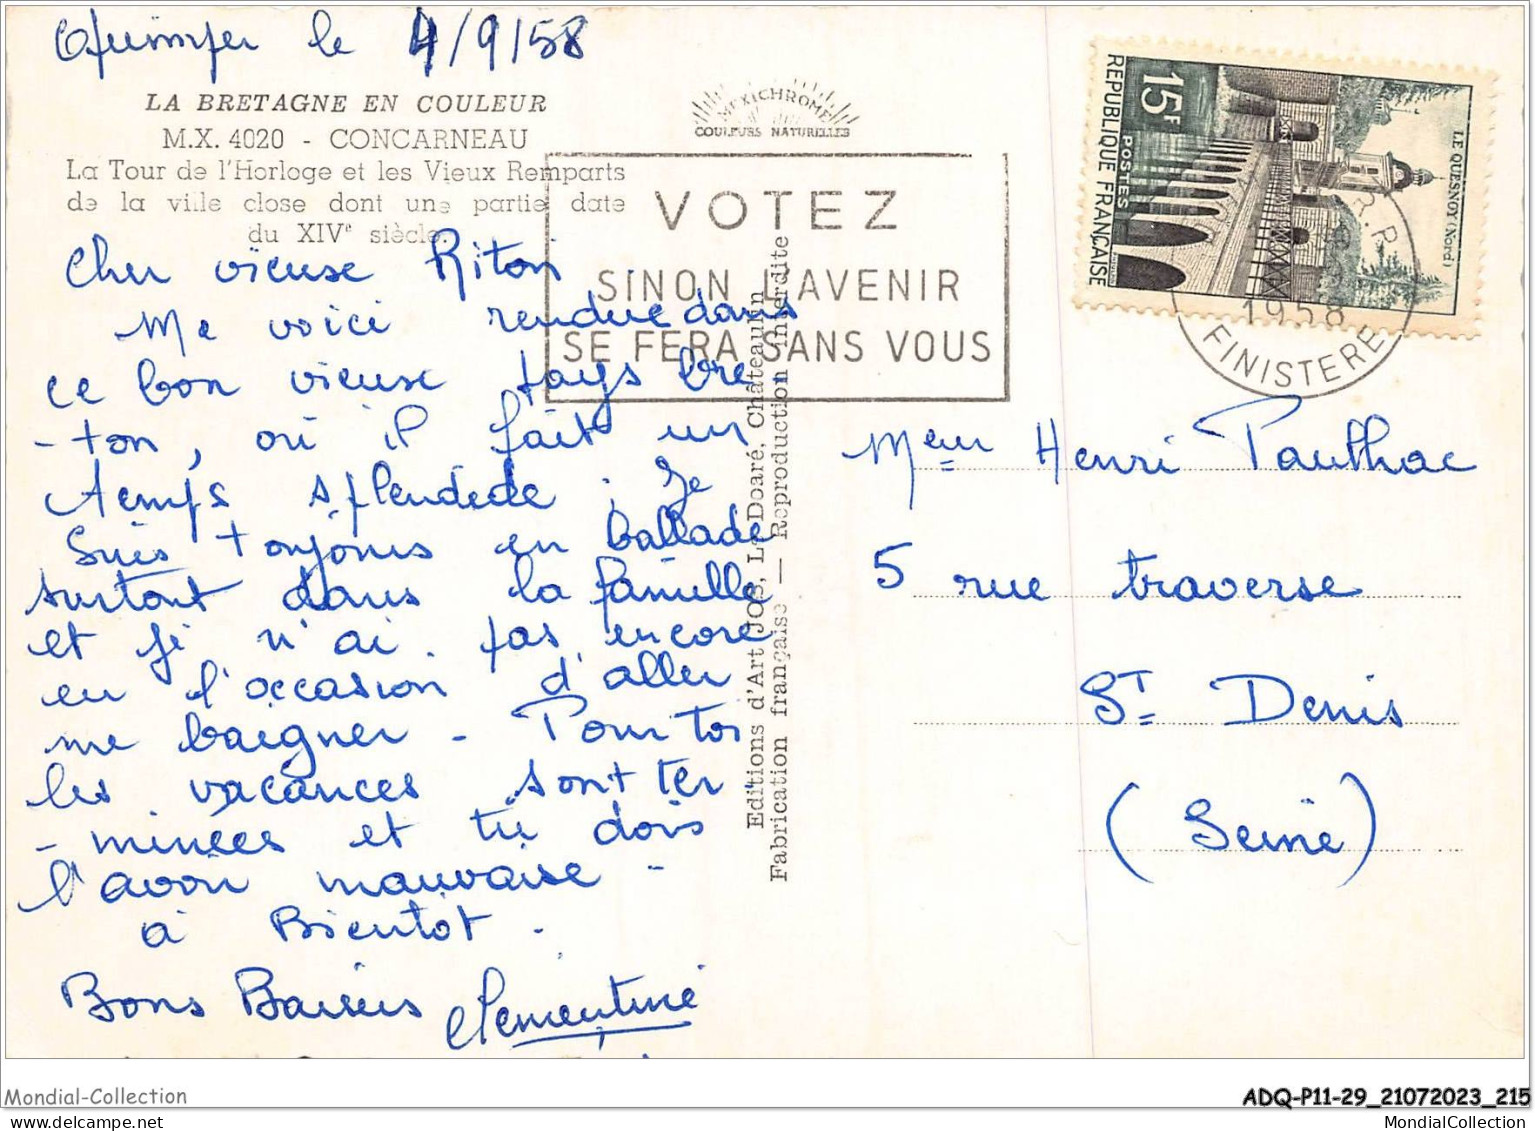 Quimper le 4/9/58
LA BRETAGNE EN COULEUR
M.X. 4020 - CONCARNEAU
La Tour de l'Horloge et les Vieux Remparts
de la ville close dont une partie date
du XIVe siècle.
MEXICHROME
COULEURS NATURELLES
VOTEZ
SINON L'AVENIR
SE FERA SANS VOUS
15F
POSTES
REPUBLIQUE FRANÇAISE
LE QUESNOY (Nord)
R.P.
1958
FINISTERE
Cher vieuse Riton
Me voici rendue dans
ce bon vieuse pays bre
-ton, où il fait un
temps splendede ; Je
suis toujours en ballade
surtout dans la famille
et je n'ai pas encore
eu l'occasion d'aller
me baigner - Pour toi
les vacances sont ter
-minées et tu dois
l'avoir mauvaise -
à Bientôt .
Bons Baisers Clementine
Editions d'Art JOS, Le Doaré, Châteaulin
Fabrication française — Reproduction interdite
Meur Henri Paulhac
5 rue traverse
ST Denis
(Seine)
Mondial-Collection
ADQ-P11-29_21072023_215
MondialCollection